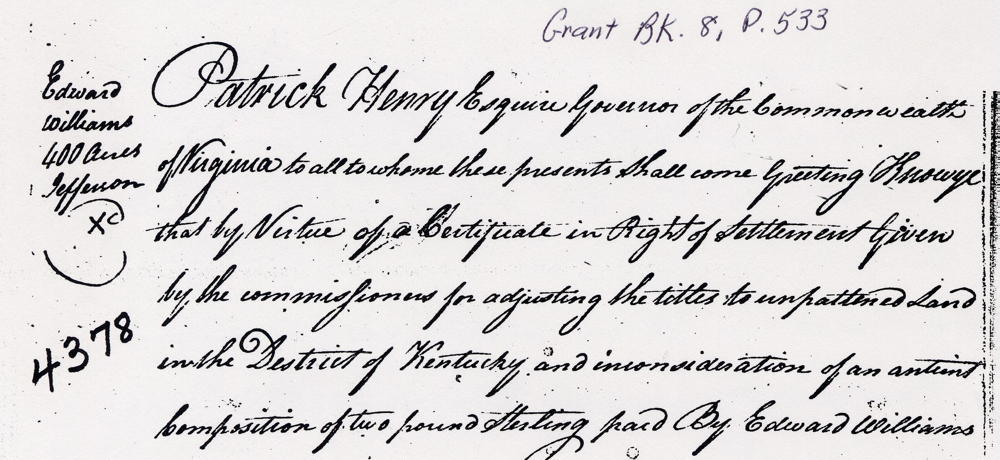 Grant BK. 8, P. 533
Edward
Williams
400 Acres
Jefferson
Xc
4378
Patrick Henry Esquire Governor of the Commonwealth
of Virginia to all to whome these presents shall come Greeting Know ye
that by Virtue of a Certificate in Right of Settlement Given
by the commissioners for adjusting the titles to unpattened Land
in the District of Kentucky and inconsideration of an antient
Composition of two pound Sterling paid By Edward Williams